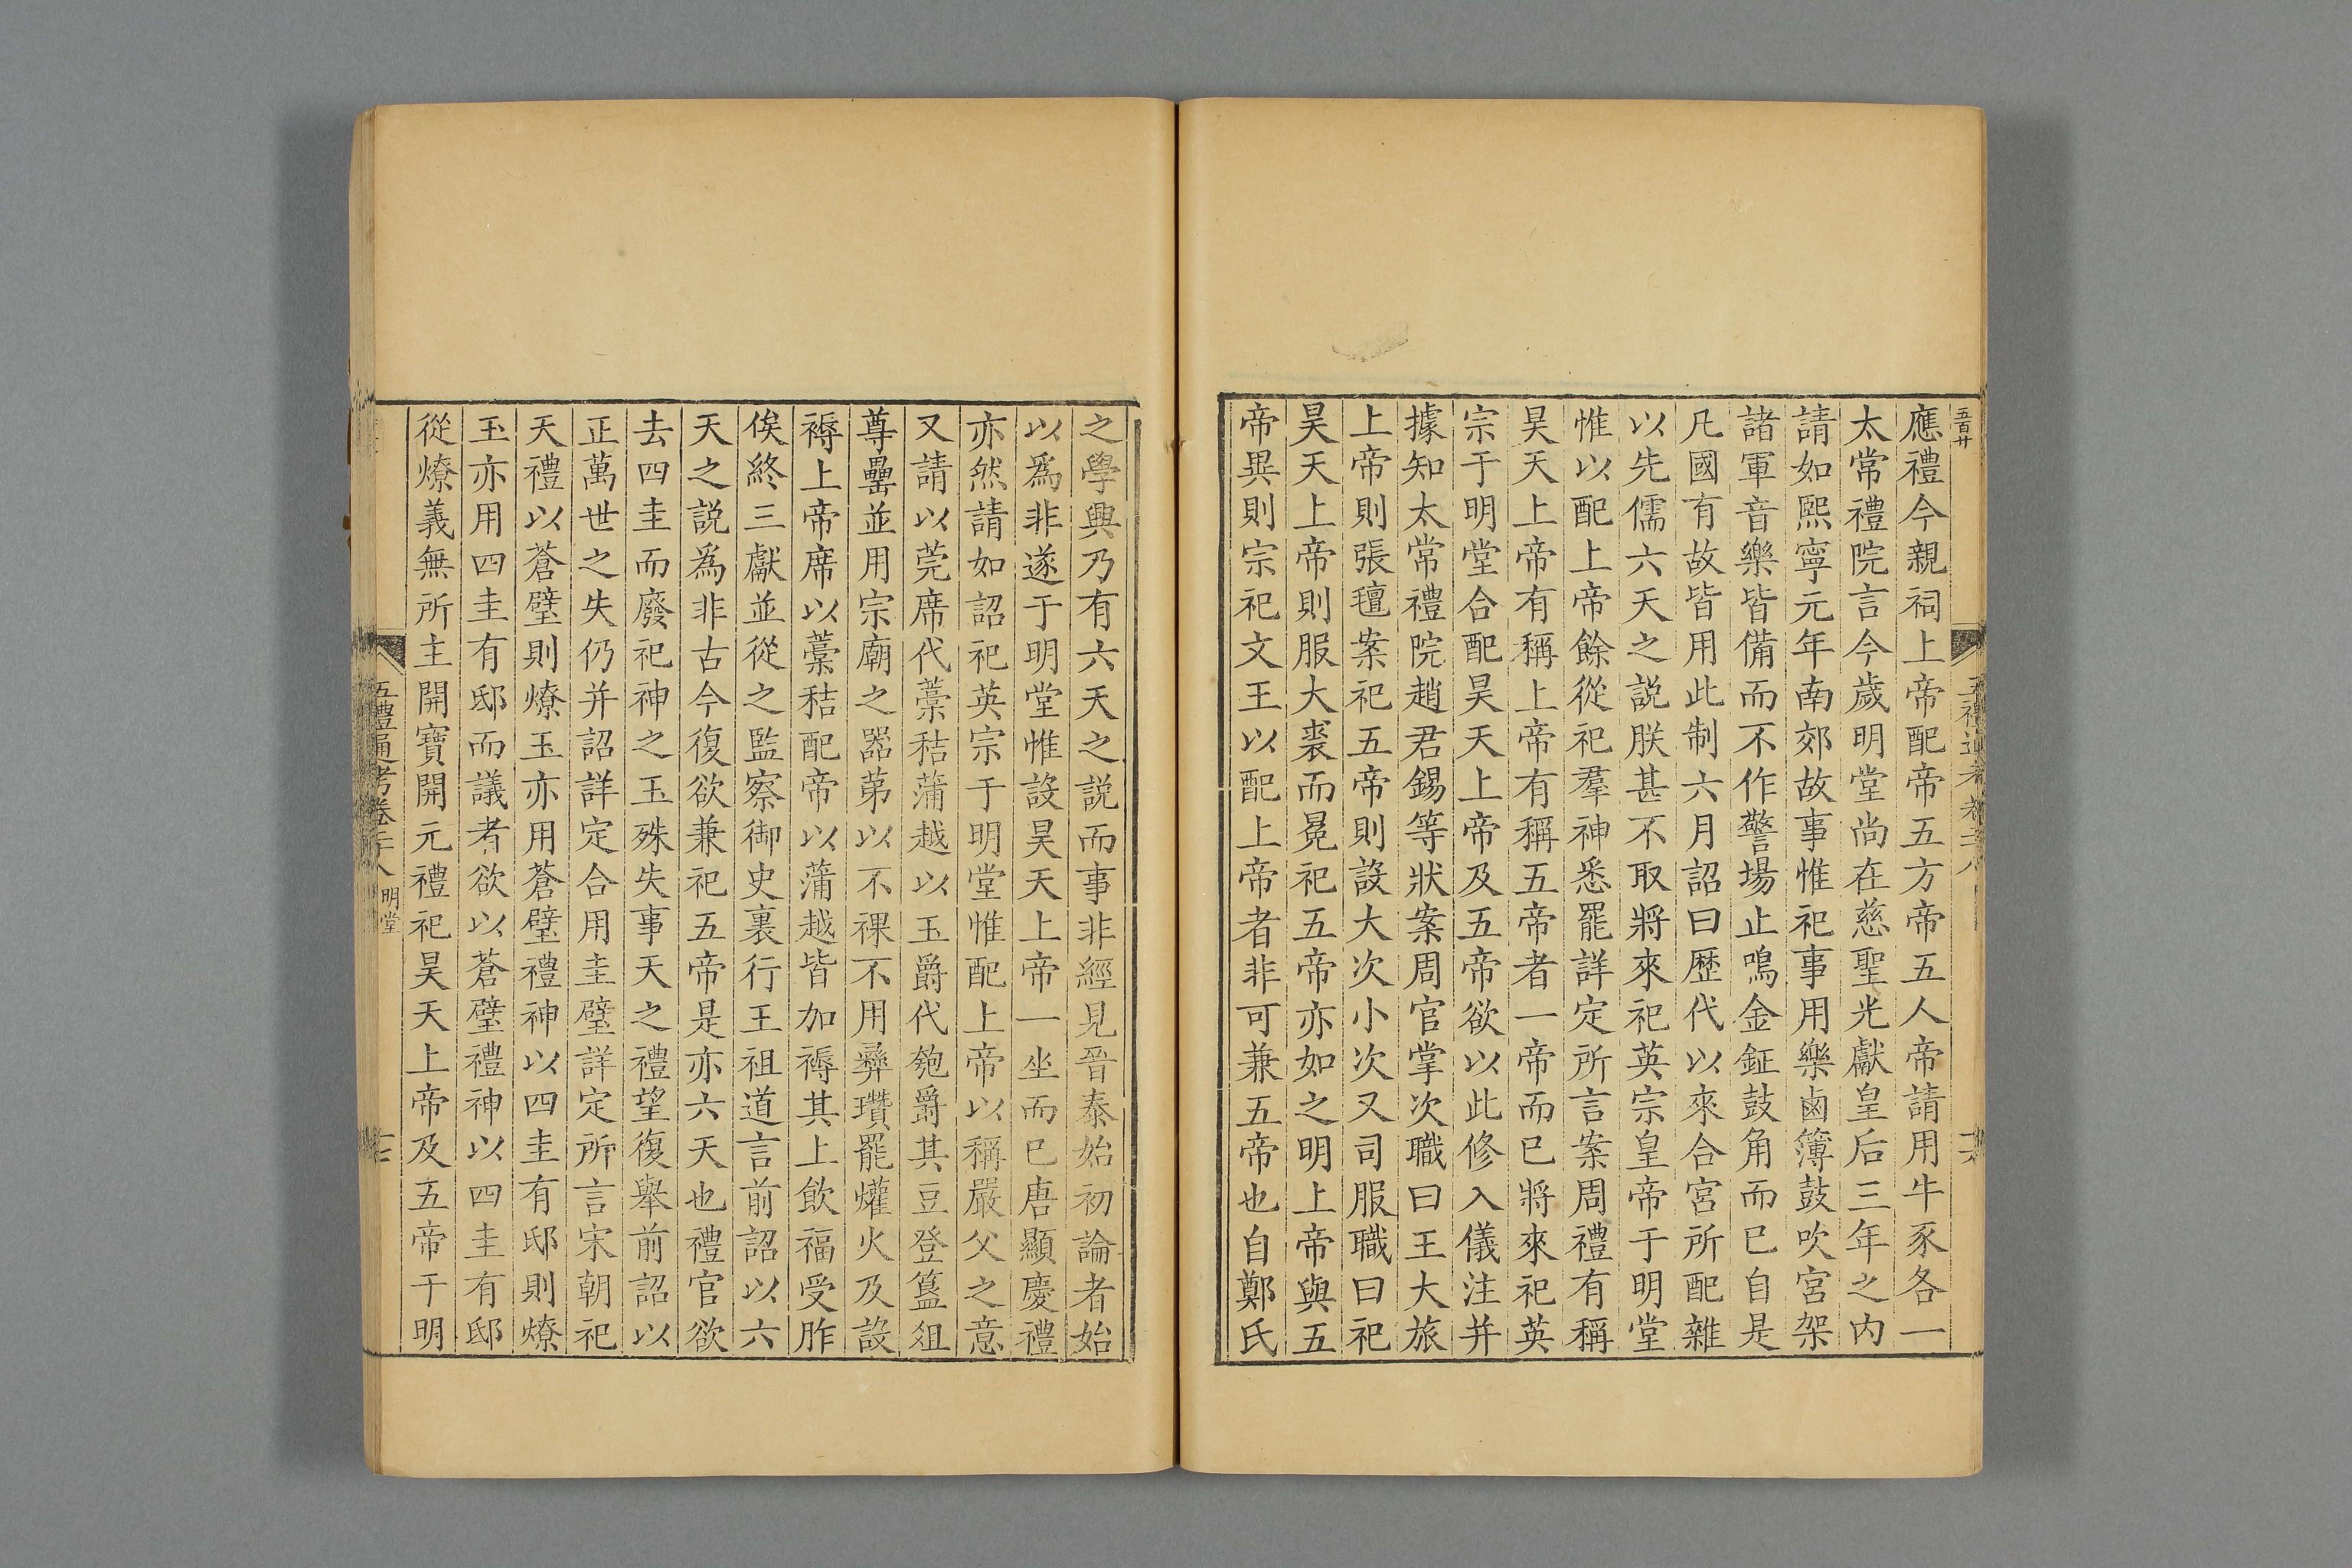 五百廿
應禮今親祠上帝配帝五方帝五人帝請用牛豕各一
太常禮院言今歲明堂尚在慈聖光獻皇后三年之內
請如熙寧元年南郊故事惟祀事用樂鹵簿鼓吹宮架
諸軍音樂皆備而不作警場止鳴金鉦鼓角而已自是
凡國有故皆用此制六月詔曰歷代以來合宮所配雜
以先儒六天之說朕甚不取將來祀英宗皇帝于明堂
惟以配上帝餘從祀羣神悉罷詳定所言案周禮有稱
昊天上帝有稱上帝有稱五帝者一帝而已將來祀英
宗于明堂合配昊天上帝及五帝欲以此修入儀注并
據知太常禮院趙君錫等狀案周官掌次職曰王大旅
上帝則張氊案祀五帝則設大次小次又司服職曰祀
昊天上帝則服大裘而冕祀五帝亦如之明上帝與五
帝異則宗祀文王以配上帝者非可兼五帝也自鄭氏
之學興乃有六天之說而事非經見晉泰始初論者始
以爲非遂于明堂惟設昊天上帝一坐而已唐顯慶禮
亦然請如詔祀英宗于明堂惟配上帝以稱嚴父之意
又請以莞席代藁秸蒲越以玉爵代匏爵其豆登簋俎
尊罍並用宗廟之器第以不祼不用彝瓚罷爟火及設
褥上帝席以藁秸配帝以蒲越皆加褥其上飲福受胙
俟終三獻並從之監察御史裏行王祖道言前詔以六
天之說爲非古今復欲兼祀五帝是亦六天也禮官欲
去四圭而廢祀神之玉殊失事天之禮望復舉前詔以
正萬世之失仍并詔詳定合用圭璧詳定所言宋朝祀
天禮以蒼璧則燎玉亦用蒼璧禮神以四圭有邸則燎
玉亦用四圭有邸而議者欲以蒼璧禮神以四圭有邸
從燎義無所主開寶開元禮祀昊天上帝及五帝于明
五禮通考卷二十八 明堂